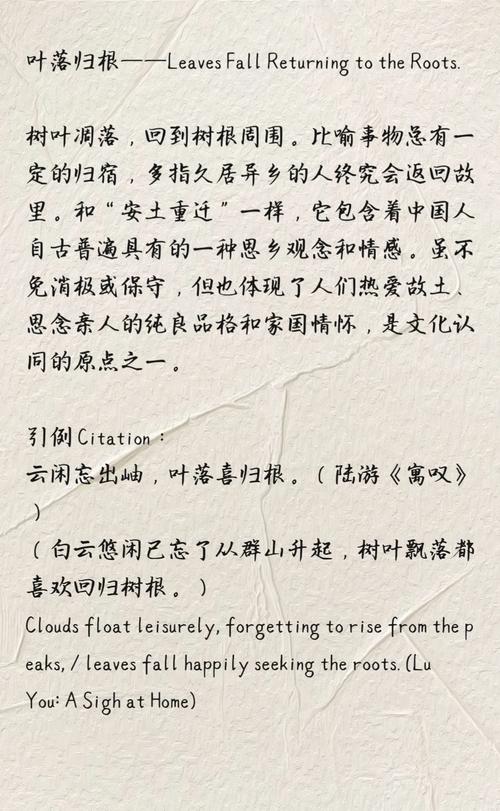 叶落归根——Leaves Fall Returning to the Roots.
树叶凋落，回到树根周围。比喻事物总有一
定的归宿，多指久居异乡的人终究会返回故
里。和“安土重迁”一样，它包含着中国人
自古普遍具有的一种思乡观念和情感。虽不
免消极或保守，但也体现了人们热爱故土、
思念亲人的纯良品格和家国情怀，是文化认
同的原点之一。
引例 Citation：
云闲忘出岫，叶落喜归根。（陆游《寓叹》
）
（白云悠闲已忘了从群山升起，树叶飘落都
喜欢回归树根。）
Clouds float leisurely, forgetting to rise from the p
eaks, / leaves fall happily seeking the roots. (Lu
You: A Sigh at Home)